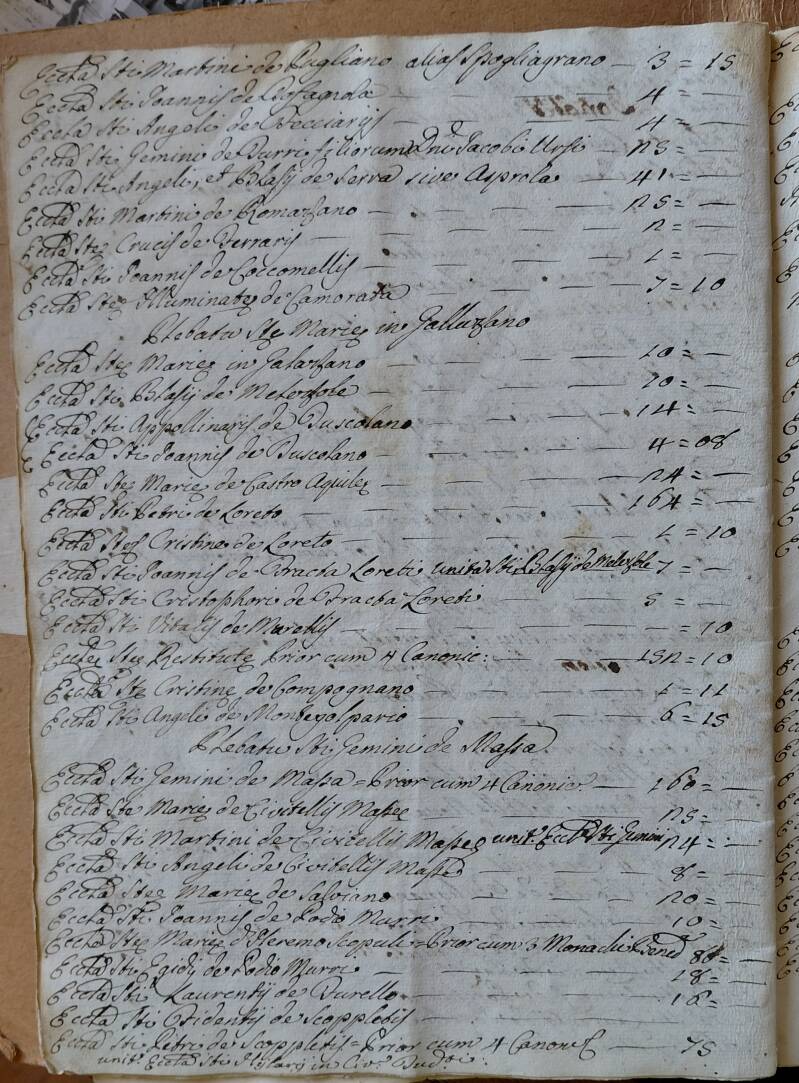 Eccl'a Sti Martini de Pugliano alias Spogliagrano — 3 = 15
Eccl'a Sti Joannis de — — — 4 = —
Eccl'a Sti Angeli de — — — 4 = —
Eccl'a Sti Gemini de Turri filiorum Dni Jacobi Ursi — 25 = —
Eccl'a Sti Angeli, et Blasij de Serra sive Aprola — — 41 = —
Eccl'a Sti Martini de Romazzano — — — 25 = —
Eccl'a Ste Crucis de Terrarijs — — — 2 = —
Eccl'a Sti Joannis de Coccomellis — — — 1 = —
Eccl'a Ste Illuminate de Camorata — — — 7 = 10
Plebatu Ste Marie in Gallazzano
Eccl'a Ste Marie in Galazzano — — — 10 = —
Eccl'a Sti Blasij de Melezzole — — — 20 = —
Eccl'a Sti Appollinaris de Tuscolano — — — 14 = —
Eccl'a Sti Joannis de Tuscolano — — — 4 = 08
Eccl'a Ste Marie de Castro Aquile — — — 24 = —
Eccl'a Sti Petri de Loreto — — — 164 = —
Eccl'a Ste Cristine de Loreto — — — 1 = 10
Eccl'a Sti Joannis de Fracta Loreti unita Sti Blasij de Melezzole 7 = —
Eccl'a Sti Cristophori de Fracta Loreti — — 5 = —
Eccl'a Sti Vitalis de Morellis — — — = 10
Eccl'a Ste Restitute Prior cum 4 Canonic: — — 152 = 10
Eccl'a Ste Cristine de Compognano — — — 1 = 11
Eccl'a Sti Angeli de Montegaspario — — — 6 = 15
Plebatu Sti Gemini de Massa
Eccl'a Sti Gemini de Massa = Prior cum 4 Canonic. — 160 = —
Eccl'a Ste Marie de Civitellis Masse — — — 25 = —
Eccl'a Sti Martini de Civitellis Masse unit. Eccl. Sti Gemini 24 = —
Eccl'a Sti Angeli de Civitellis Masse — — 8 = —
Eccl'a Ste Marie de Salviano — — — 20 = —
Eccl'a Sti Joannis de Podio Murri — — — 10 = —
Eccl'a Ste Marie d'Heremo Scopuli = Prior cum 3 Monachi Bened 80 = —
Eccl'a Sti Egidij de Podio Murri — — — 18 = —
Eccl'a Sti Laurentij de Burello — — — 16 = —
Eccl'a Sti Fidentij de Scoppletis — — —
Eccl'a Sti Petri de Scoppletis = Prior cum 4 Canonic — 75
unit. Eccl'a Sti Hylarij in Civ.